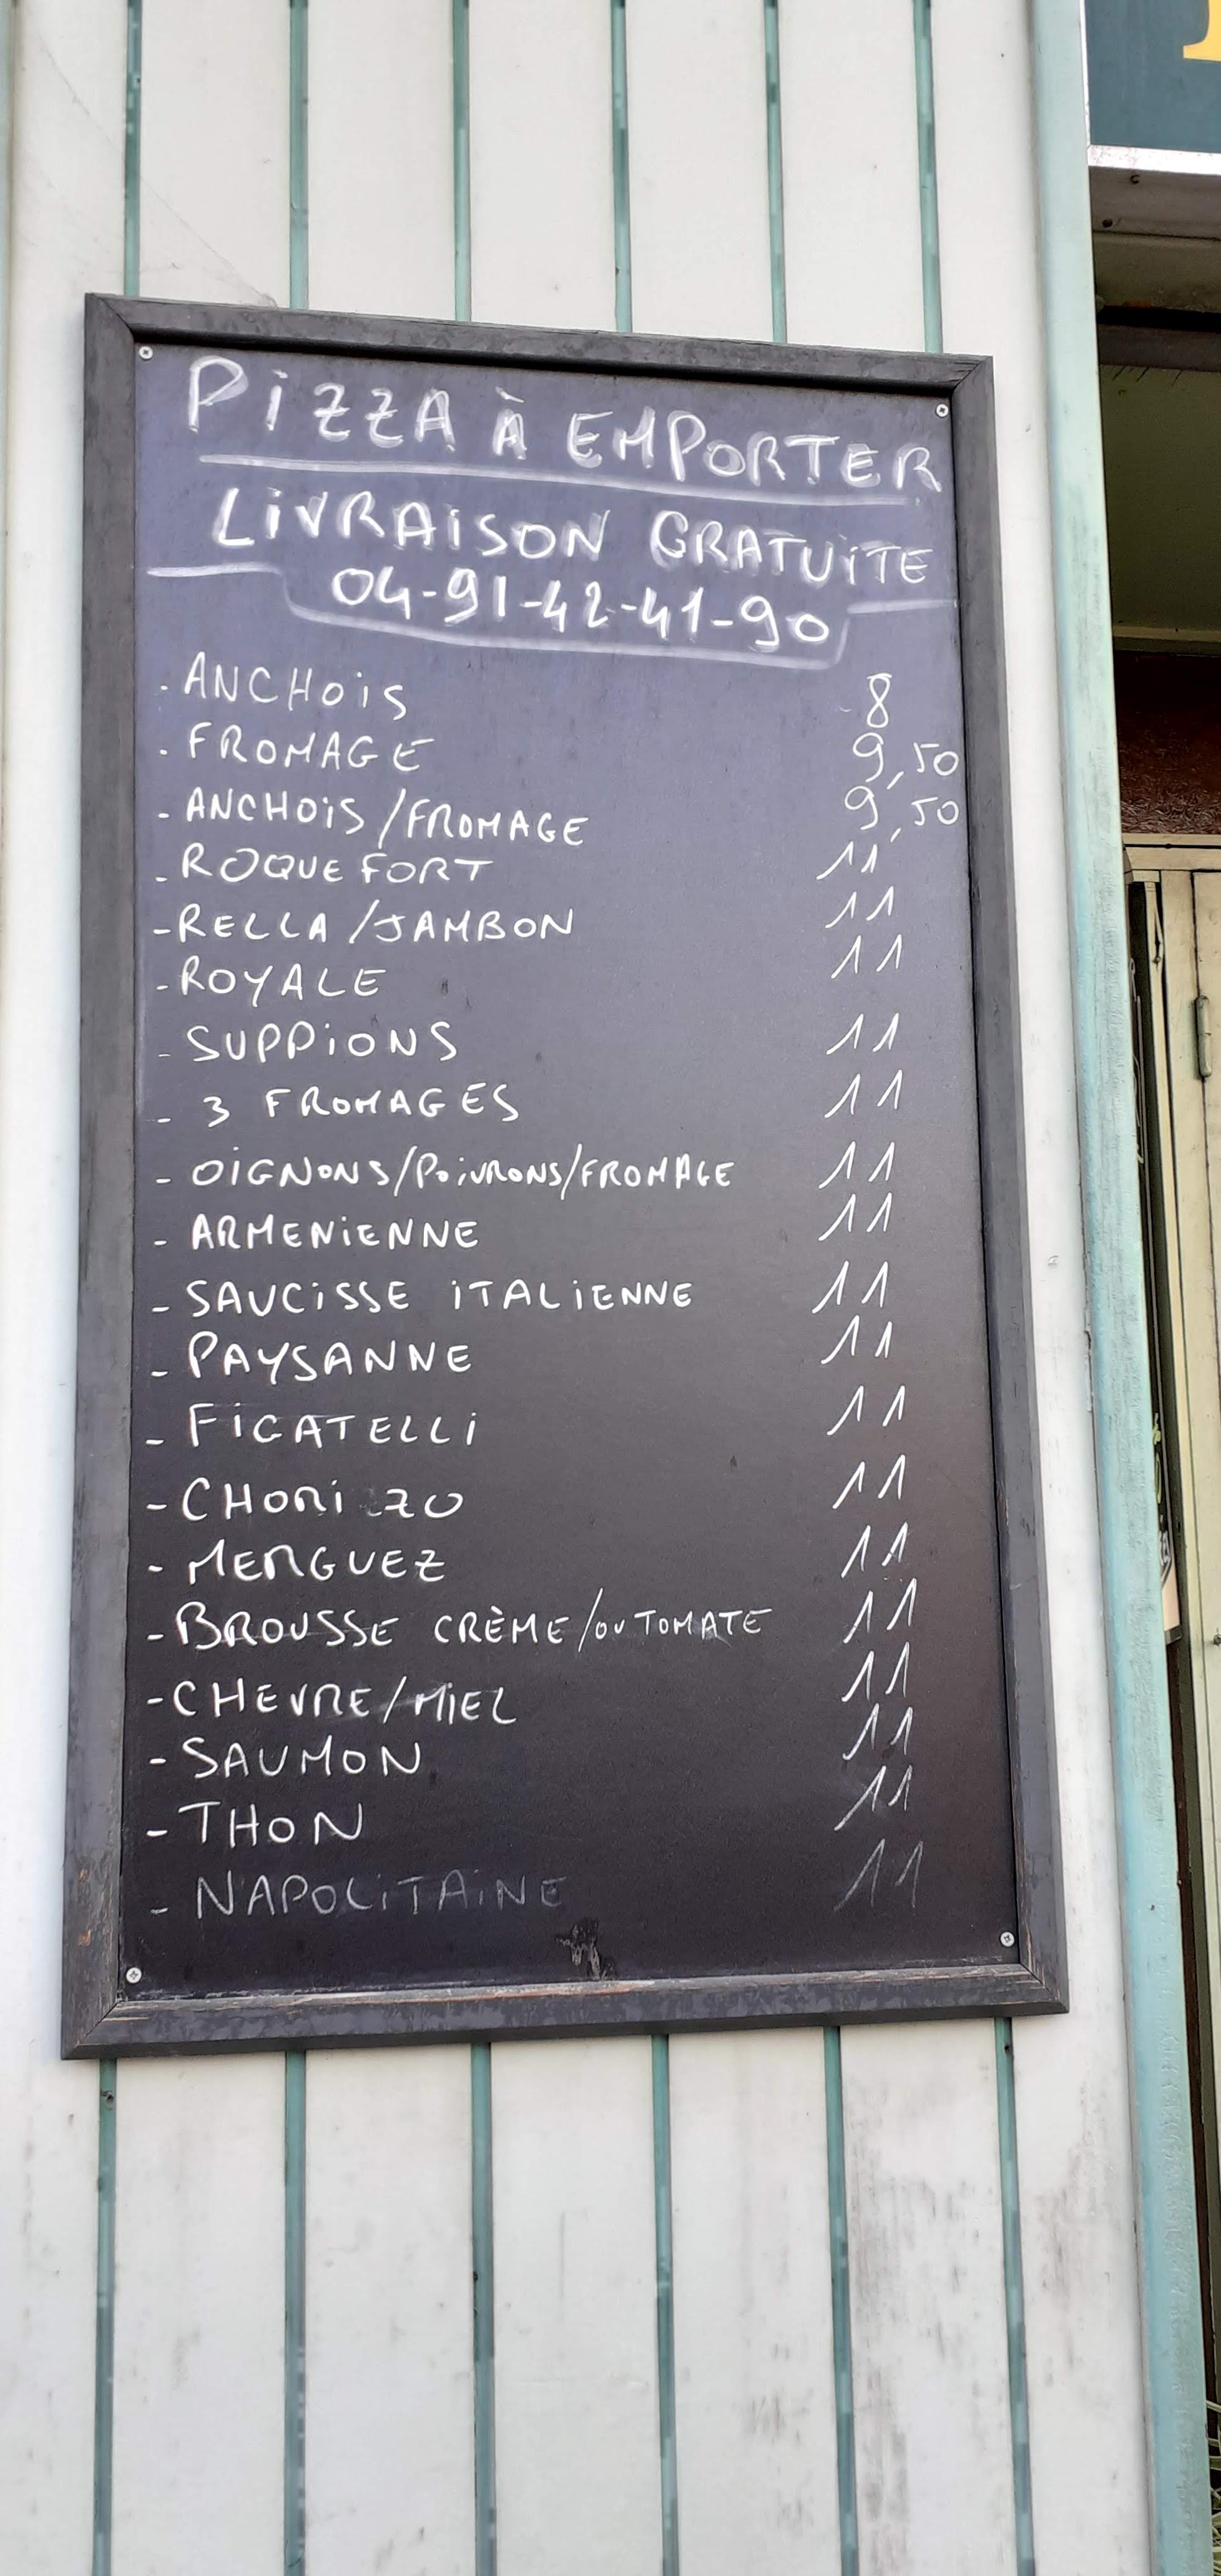 PiZZA À EMPORTER
LiVRAiSON GRATUiTE
04-91-42-41-90
. ANCHOiS 8
. FROMAGE 9,50
- ANCHOiS/FROMAGE 9,50
- ROQUEFORT 11
- RELLA/JAMBON 11
- ROYALE 11
- SUPPiONS 11
- 3 FROMAGES 11
- OiGNONS/POiVRONS/FROMAGE 11
- ARMENiENNE 11
- SAUCiSSE iTALiENNE 11
- PAYSANNE 11
- FiGATELLi 11
- CHORiZO 11
- MERGUEZ 11
- BROUSSE CRÈME/OU TOMATE 11
- CHEVRE/MiEL 11
- SAUMON 11
- THON 11
- NAPOLiTAiNE 11